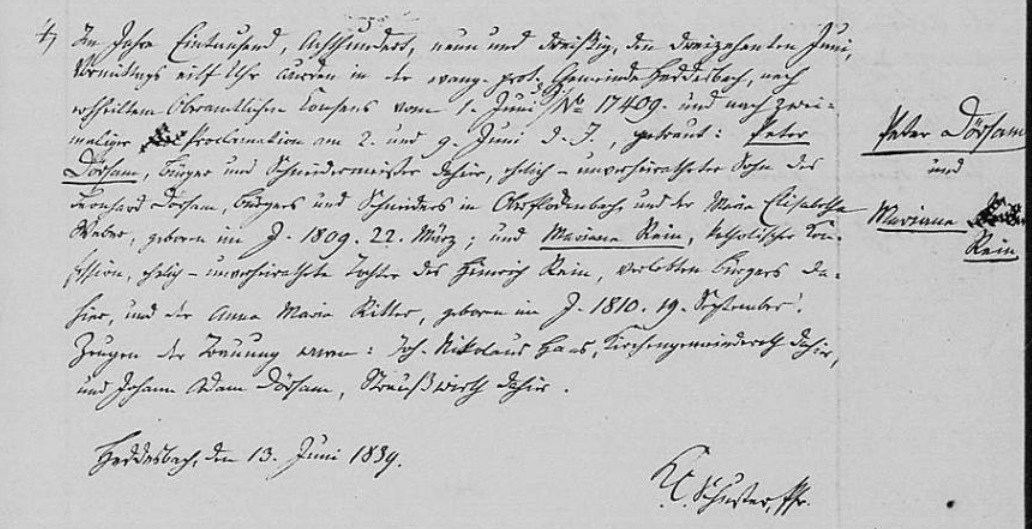 4) Im Jahre Eintausend, Achthundert, neun und dreißig, den dreizehenten Juni,
Vormittags eilf Uhr wurden in der evang. prot. Gemeinde Heddesbach, nach
ertheiltem Oberamtlichen Konsens vom 1. Juni d. J. No 17409. und nach zwei-
maliger Proclamation am 2. und 9. Juni d. J., getraut: Peter
Dörsam, Bürger und Schneidermeister dahier, ehelich - unverheiratheter Sohn des
Leonhard Dörsam, Bürgers und Schneiders in Oberflockenbach, und der Maria Elisabetha
Weber, geboren im J. 1809. 22. März; und Mariana Rein, katholischer Con-
fession, ehelich - unverheirathete Tochter des Heinrich Rein, verlebten Bürgers da-
hier, und der Anna Maria Ritter, geboren im J. 1810. 19. September.
Zeugen der Trauung waren: Joh. Nikolaus Haas, Kirchengemeinderath dahier,
und Johann Adam Dörsam, Straußwirth dahier.
Heddesbach, den 13. Juni 1839.
Schuster, Pfr.
Peter Dörsam
und
Mariana
Rein